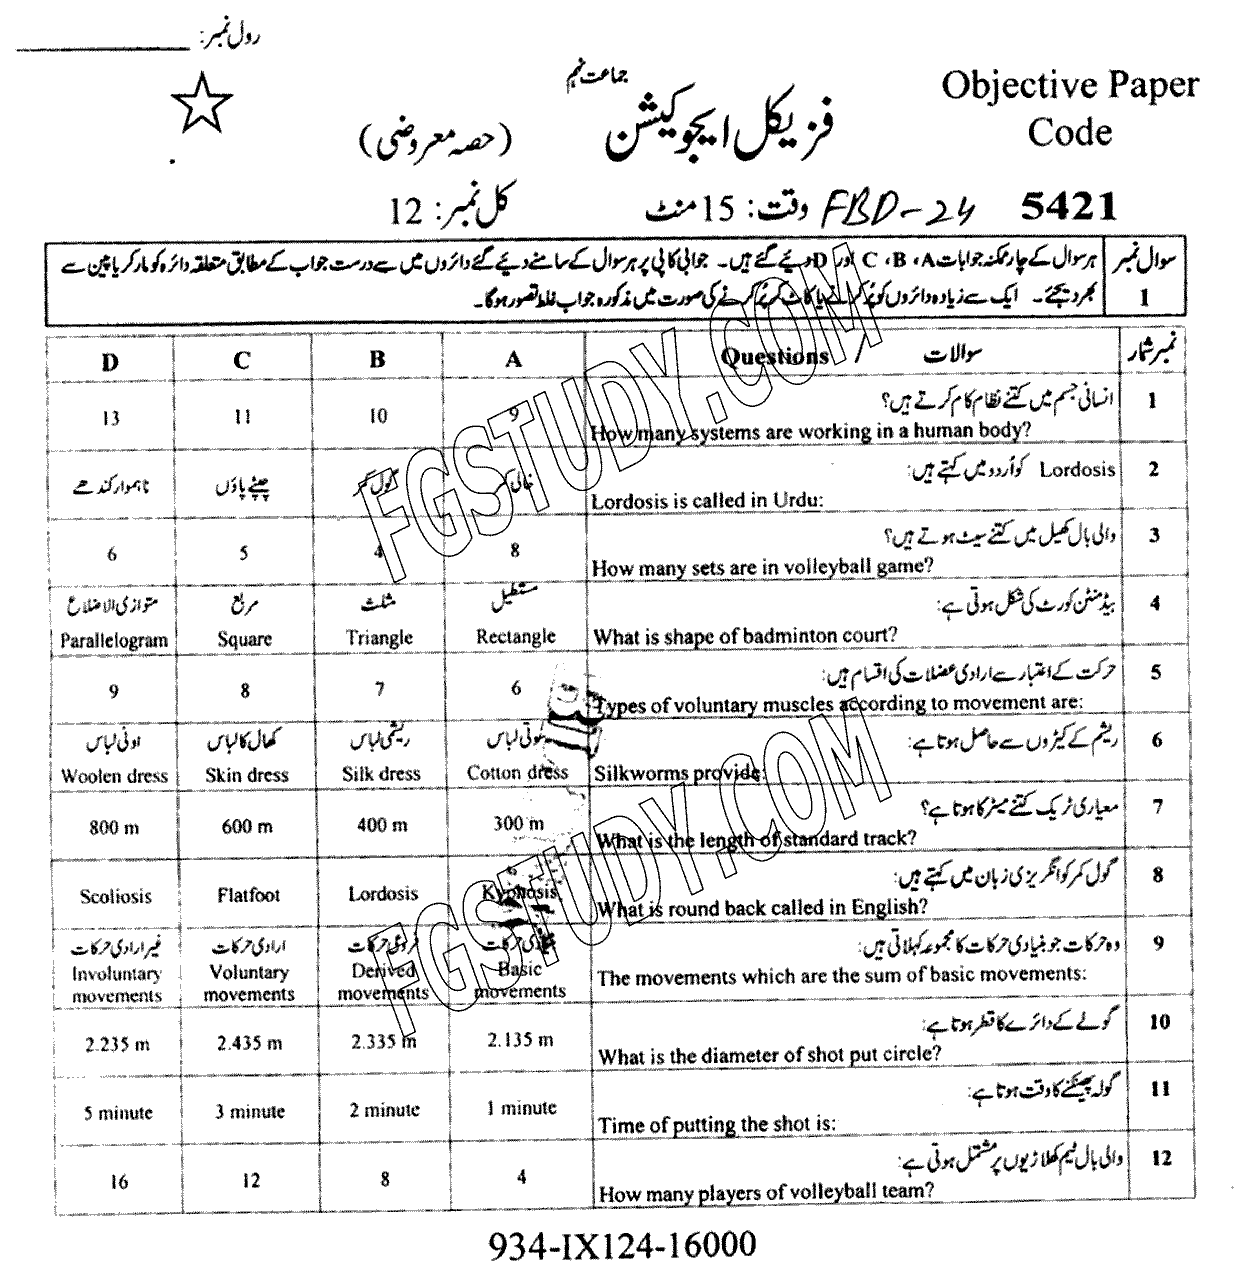 رول نمبر: ____________
جماعت نہم
Objective Paper
Code
فزیکل ایجوکیشن
(حصہ معروضی)
5421
FBD-24
وقت: 15 منٹ
کل نمبر: 12
سوال نمبر 1
ہر سوال کے چار ممکنہ جوابات A، B، C اور D دیئے گئے ہیں۔ جوابی کاپی پر ہر سوال کے سامنے دیئے گئے دائروں میں سے درست جواب کے مطابق متعلقہ دائرہ کو مارکر یا پین سے
بھر دیجئے۔ ایک سے زیادہ دائروں کو پُر کرنے یا کاٹ کر پُر کرنے کی صورت میں مذکورہ جواب غلط تصور ہوگا۔
نمبر شمار سوالات / Questions A B C D
1 انسانی جسم میں کتنے نظام کام کرتے ہیں؟
How many systems are working in a human body?
9 10 11 13
2 Lordosis کو اُردو میں کہتے ہیں:
Lordosis is called in Urdu:
خالی کمر گول کمر چپٹے پاؤں ناہموار کندھے
3 والی بال کھیل میں کتنے سیٹ ہوتے ہیں؟
How many sets are in volleyball game?
8 4 5 6
4 بیڈمنٹن کورٹ کی شکل ہوتی ہے:
What is shape of badminton court?
مستطیل مثلث مربع متوازی الاضلاع
Rectangle Triangle Square Parallelogram
5 حرکت کے اعتبار سے ارادی عضلات کی اقسام ہیں:
Types of voluntary muscles according to movement are:
6 7 8 9
6 ریشم کے کیڑوں سے حاصل ہوتا ہے:
Silkworms provide:
سوتی لباس ریشمی لباس کھال کا لباس اونی لباس
Cotton dress Silk dress Skin dress Woolen dress
7 معیاری ٹریک کتنے میٹر کا ہوتا ہے؟
What is the length of standard track?
300 m 400 m 600 m 800 m
8 گول کمر کو انگریزی زبان میں کہتے ہیں:
What is round back called in English?
Kyphosis Lordosis Flatfoot Scoliosis
9 وہ حرکات جو بنیادی حرکات کا مجموعہ کہلاتی ہیں:
The movements which are the sum of basic movements:
بنیادی حرکات فروعی حرکات ارادی حرکات غیر ارادی حرکات
Basic Derived Voluntary Involuntary
movements movements movements movements
10 گولے کے دائرے کا قطر ہوتا ہے:
What is the diameter of shot put circle?
2.135 m 2.335 m 2.435 m 2.235 m
11 گولہ پھینکنے کا وقت ہوتا ہے:
Time of putting the shot is:
1 minute 2 minute 3 minute 5 minute
12 والی بال ٹیم کھلاڑیوں پر مشتمل ہوتی ہے:
How many players of volleyball team?
4 8 12 16
934-IX124-16000
FGSTUDY.COM
FGSTUDY.COM